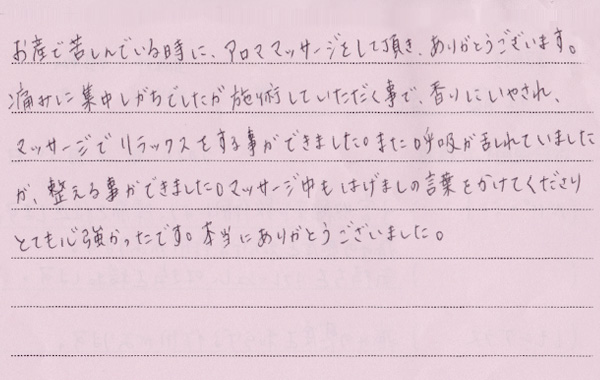 お産で苦しんでいる時に、アロママッサージをして頂き、ありがとうございます。
痛みに集中しがちでしたが施術していただく事で、香りにいやされ、
マッサージでリラックスをする事ができました。また呼吸が乱れていました
が、整える事ができました。マッサージ中もはげましの言葉をかけてくださり
とても心強かったです。本当にありがとうございました。